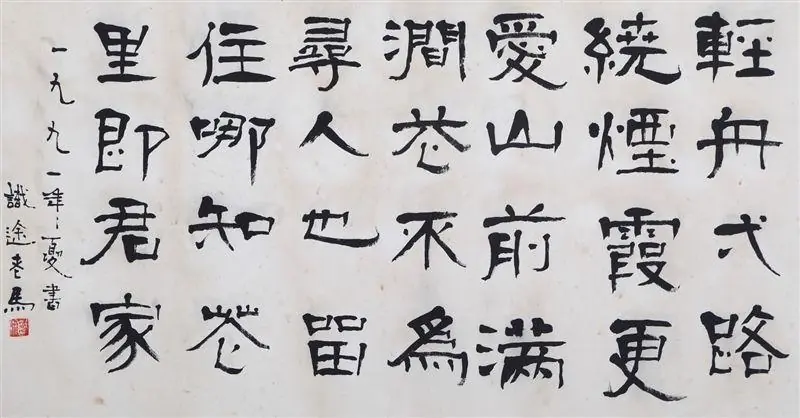 輕舟弌路
繞煙霞更
愛山前滿
澗花不為
尋人也留
住哪知花
里即君家
一九九一年之夏書
識途老馬